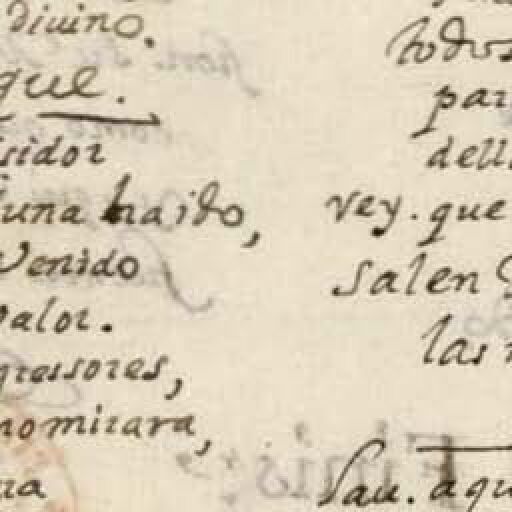 diuino.
que.
sidor
una ha ido,
Venido
valor.
gressores,
nomirara,
ua
todos
par
dell
vey. que
salen
las
Lau. aqu